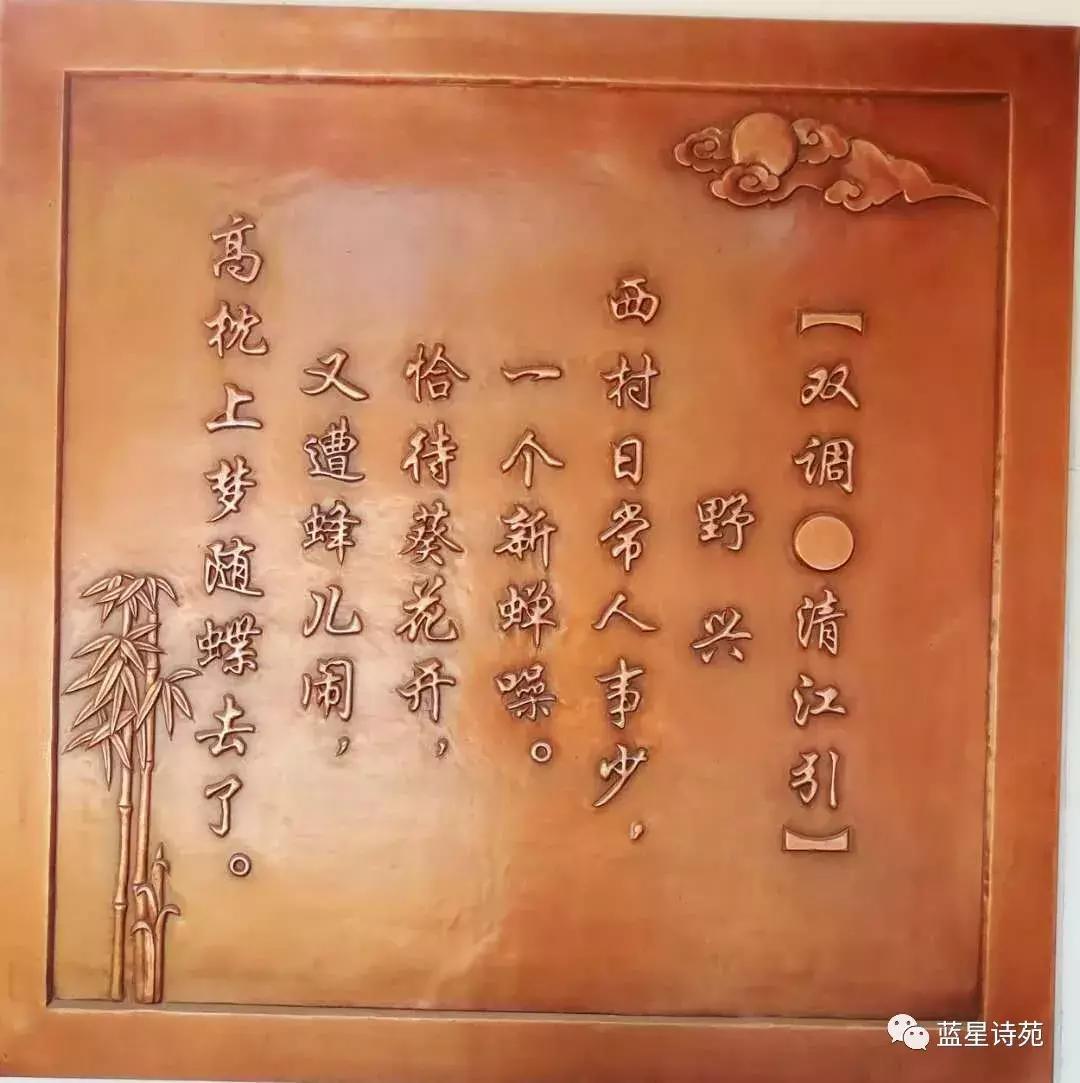 【双调●清江引】
野兴
西村日常人事少，
一个新蝉噪。
恰待葵花开，
又遭蜂儿闹，
高枕上梦随蝶去了。
蓝星诗苑